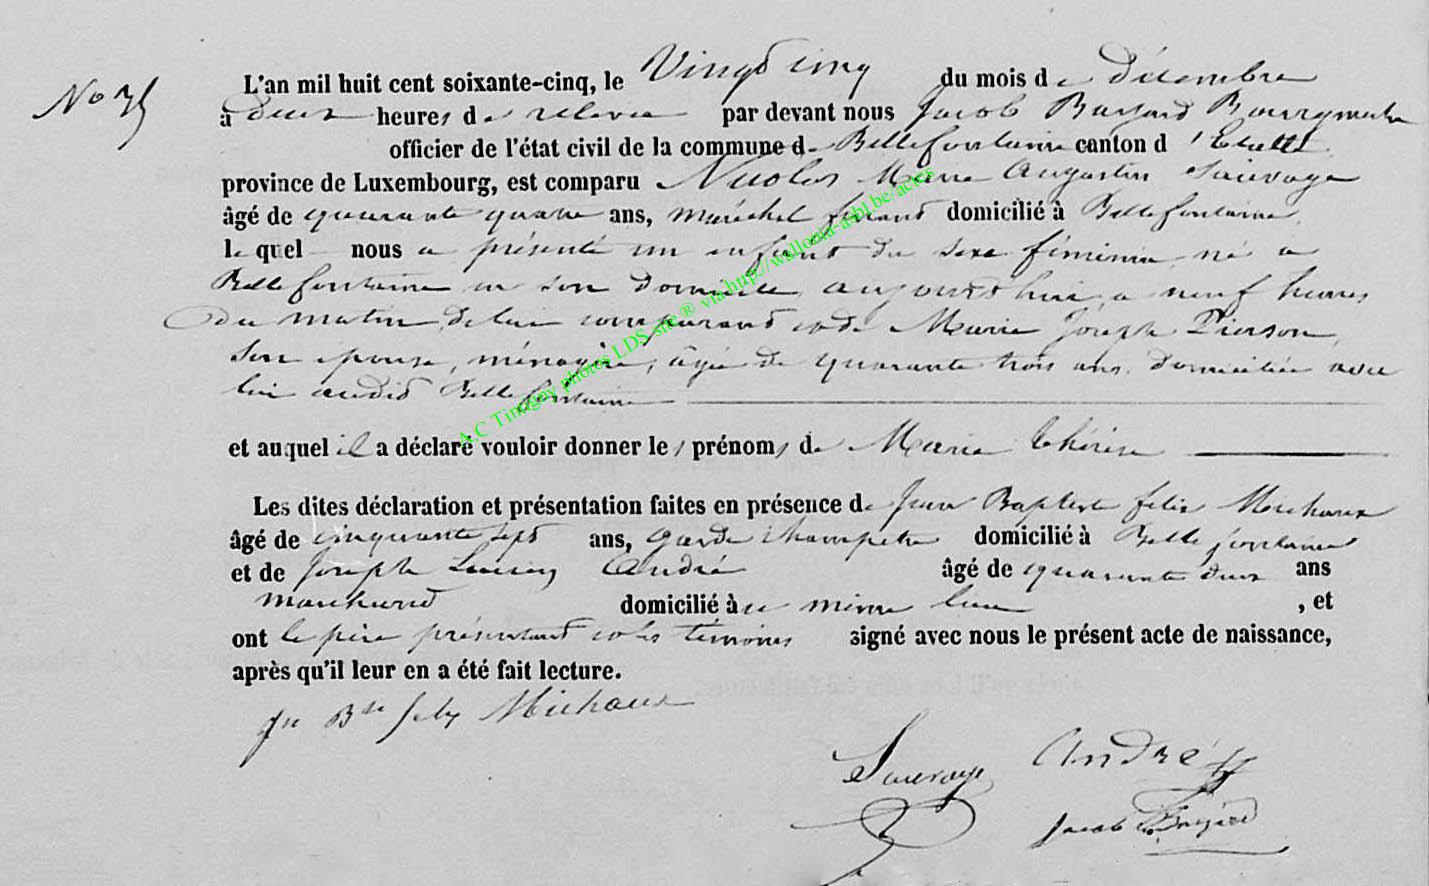 No 35
L'an mil huit cent soixante-cinq, le Vingt cinq du mois de décembre
à deux heures de relevée par devant nous Jacob Bourgmestre
officier de l'état civil de la commune de Bellefontaine canton d'Etalle
province de Luxembourg, est comparu Nicolas Marie Augustin Sauvage
âgé de quarante quatre ans, maréchal ferrant domicilié à Bellefontaine,
lequel nous a présenté un enfant du sexe féminin né à
Bellefontaine en son domicile, aujourd'hui, a neuf heures
du matin, de lui comparant et de Marie Joseph Pierson,
son épouse, ménagère, âgée de quarante trois ans domiciliée avec
lui audit Bellefontaine
et auquel il a déclaré vouloir donner les prénoms de Marie thérèse
Les dites déclaration et présentation faites en présence de Jean Baptiste felix Michaux
âgé de cinquante sept ans, garde champetre domicilié à Bellefontaine
et de Joseph André âgé de quarante deux ans
marchand domicilié à ce même lieu , et
ont le père présentant et les témoins signé avec nous le présent acte de naissance,
après qu'il leur en a été fait lecture.
Jn Bte felix Michaux
Sauvage André
Jacob
A.C Tintigny photos LDS site ® via http://wallonia-asbl.be/actes